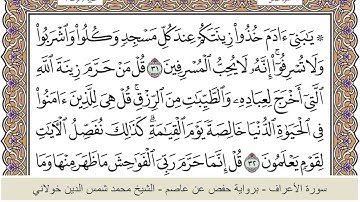 ۞ يَٰبَنِىٓ ءَادَمَ خُذُوا۟ زِينَتَكُمْ عِندَ كُلِّ مَسْجِدٍ وَكُلُوا۟ وَٱشْرَبُوا۟
وَلَا تُسْرِفُوٓا۟ إِنَّهُۥ لَا يُحِبُّ ٱلْمُسْرِفِينَ ٣١ قُلْ مَنْ حَرَّمَ زِينَةَ ٱللَّهِ
ٱلَّتِىٓ أَخْرَجَ لِعِبَادِهِۦ وَٱلطَّيِّبَٰتِ مِنَ ٱلرِّزْقِ قُلْ هِىَ لِلَّذِينَ ءَامَنُوا۟
فِى ٱلْحَيَوٰةِ ٱلدُّنْيَا خَالِصَةً يَوْمَ ٱلْقِيَٰمَةِ كَذَٰلِكَ نُفَصِّلُ ٱلْءَايَٰتِ
لِقَوْمٍ يَعْلَمُونَ ٣٢ قُلْ إِنَّمَا حَرَّمَ رَبِّىَ ٱلْفَوَٰحِشَ مَا ظَهَرَ مِنْهَا وَمَا
سورة الأعراف - برواية حفص عن عاصم - الشيخ محمد شمس الدين خولاني